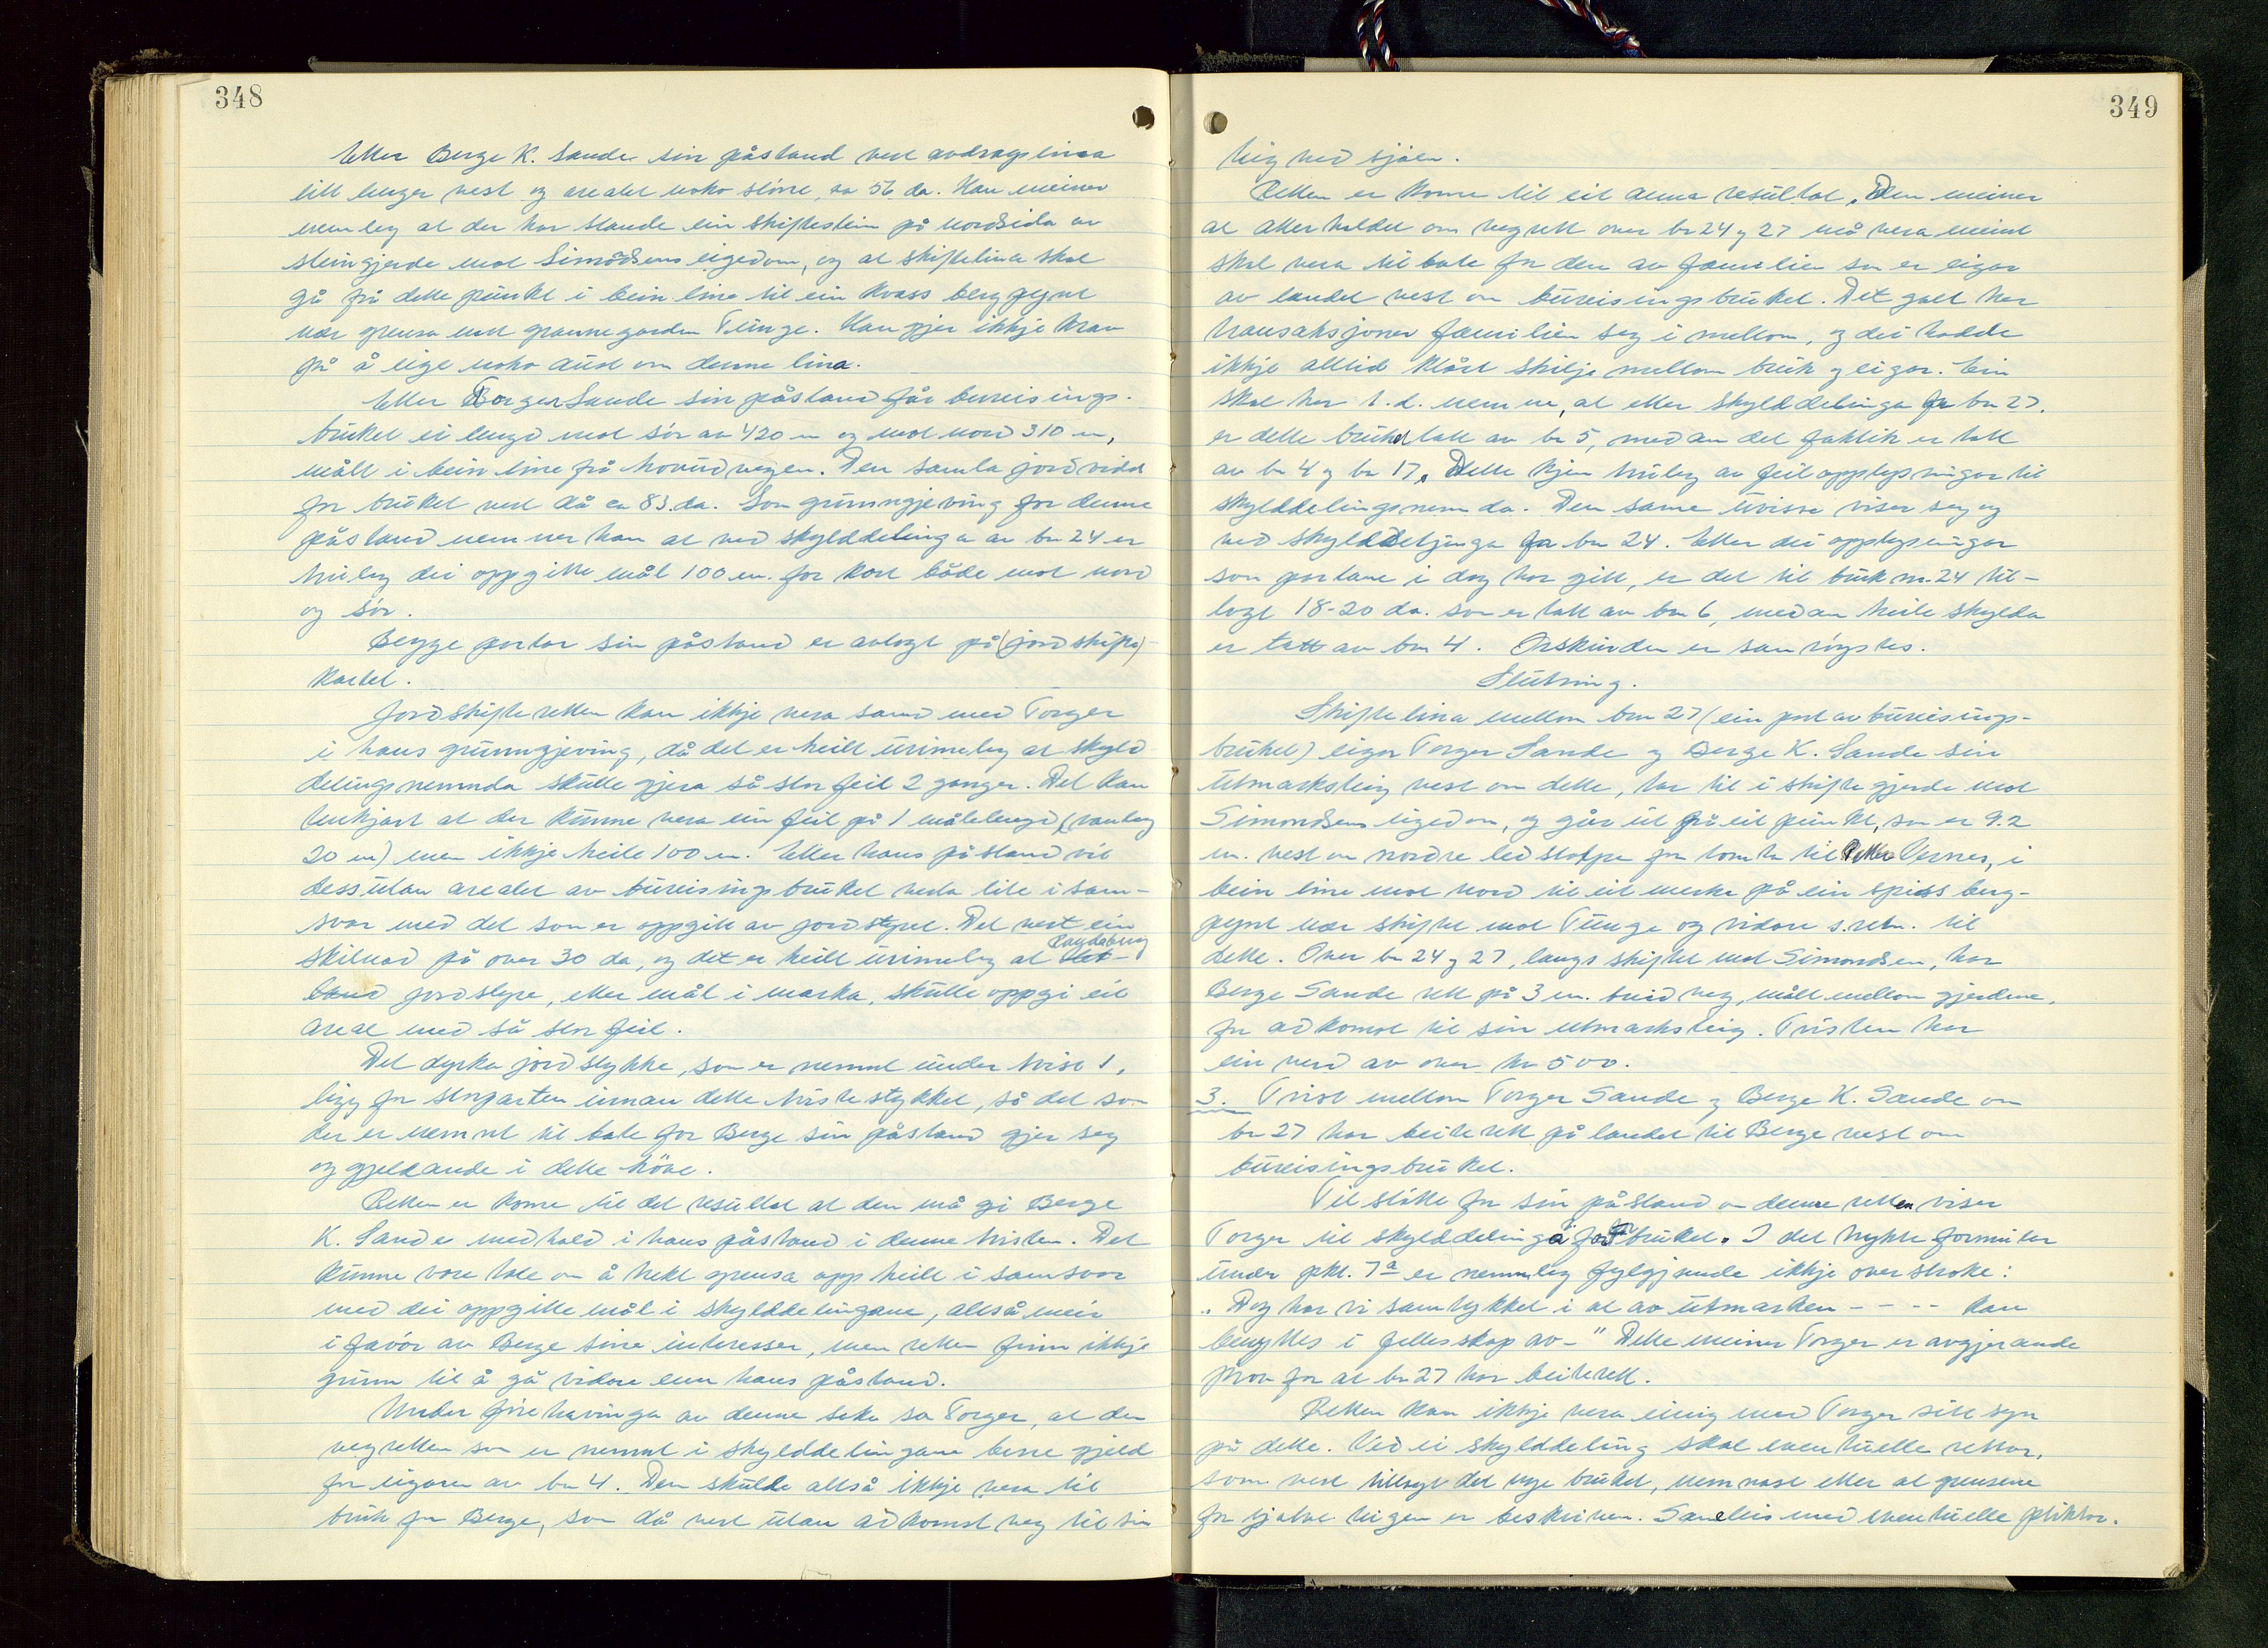 348
Etter Berge K. Sande sin påstand vert avdragslina
litt lenger vest og arealet noko större, ca 56 da. Han meiner
nemleg at der har stande ein skiftestein på nordsida av
steingjerde mot Simondsens eigedom, og at skiftelina skal
gå frå dette punkt i bein line til ein kvass bergpynt
nær grensa mot grannegarden Tunge. Han gjer ikkje krav
på å eige noko aust om denne lina.
Etter Torger Sande sin påstand får bureisings-
bruket ei lengd mot sör av 420 m og mot nord 310 m,
målt i bein line frå hovudvegen. Den samla jordvidd
for bruket vert då ca 83 da. Som grunngjeving for denne
påstand nemner han at ved skylddelinga av bn 24 er
truleg dei oppgitte mål 100 m. for kort både mot nord
og sör.
Begge partar sin påstand er avlagt på (jordskifte)-
kartet.
Jordskifteretten kan ikkje vera samd med Torger
i hans grunngjeving, då det er heilt urimeleg at skyld
delingsnemnda skulle gjera så stor feil 2 gonger. Det kan
tenkjast at der kunne vera ein feil på 1 målelengd (vanleg
20 m) men ikkje heile 100 m. Etter hans påstand vil
dessutan arealet av bureisingsbruket verta lite i sam-
svar med det som er oppgitt av jordstyret. Det vert ein
skilnad på over 30 da, og det er heilt urimeleg at
Randaberg
jordstyre, etter mål i marka, skulle oppgi eit
areal med så stor feil.
Det dyrka jordstykke, som er nemnt under tvist 1,
ligg for storparten innan dette tvistestykket, så det som
der er nemnt til bate for Berge sin påstand gjer seg
og gjeldande i dette höve.
Retten er kome til det resultat at den må gi Berge
K. Sande medhald i hans påstand i denne tvisten. Det
kunne vore tale om å trekt grensa opp heilt i samsvar
med dei oppgitte mål i skylddelingane, altså meir
i favör av Berge sine interesser, men retten finn ikkje
grunn til å gå vidare enn hans påstand.
Under fórehavinga av denne saka sa Torger, at den
vegretten som er nemnt i skylddelingane berre gjeld
for eigaren av bn 4. Den skulde altså ikkje vera til
bruk for Berge, som då vert utan adkomstveg til sin
349
teig ved sjöen.
Retten er kome til eit anna resultat. Den meiner
at atterhaldet om vegrett over bn 24 og 27 må vera meint
skal vera til bate for den av familien som er eigar
av landet vest om bureisingsbruket. Det galt her
transaksjoner familien seg i mellom, og dei hadde
ikkje alltid klårt skilje mellom bruk og eigar. Ein
skal her t.d. nemne, at etter skylddelinga for bn 27.
er dette bruket tatt av bn 5, medan det faktisk er tatt
av bn 4 og bn 17. Dette kjem truleg av feil opplysningar til
skylddelingsnemnda. Den same uvisse viser seg og
ved skylddelinga for bn 24. Etter dei opplysningar
som partane i dag har gitt, er det til bruk nr. 24 til-
lagt 18-20 da. som er tatt av bn 6, medan heile skylda
er tatt av bn 4. Orskurden er samröystes.
Slutning.
Skiftelina mellom bn 27 (ein part av bureisings-
bruket) eigar Torger Sande og Berge K. Sande sin
utmarksteig vest om dette, tar til i skiftegjerde mot
Simondsens eigedom, og går ut frå eit punkt, som er 9.2
m. vest om nordre ledstolpe for tomta til Petter Vernes, i
bein line mot nord til eit merke på ein spiss berg-
pynt nær skiftet mot Tunge og vidare s.retn. til
dette. Over bn 24 og 27, langs skiftet mot Simondsen, har
Berge Sande rett på 3 m. breid veg, målt mellom gjerdene,
for adkomst til sin utmarksteig. Tvisten har
ein verd av over kr 500.
3. Tvist mellom Torger Sande og Berge K. Sande om
bn 27 har beiterett på landet til Berge vest om
bureisingsbruket.
Til stötte for sin påstand om denne retten viser
Torger til skylddelinga for bruket. I det trykte formular
under pkt. 7a er nemnleg fylgjande ikkje overstroke:
"Dog har vi samtykket i at av utmarken - - - - kan
benyttes i fellesskap av-" Dette meiner Torger er avgjerande
prov for at bn 27 har beiterett.
Retten kan ikkje vera einig med Torger sitt syn
på dette. Ved ei skylddeling skal eventuelle rettar,
som vert tillagt det nye bruket, nemnast etter at grensene
for sjølve teigen er beskriven. Sameleis med eventuelle plikter.